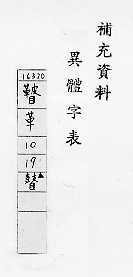 補充資料
異體字表
16320
革
10
19
瞽